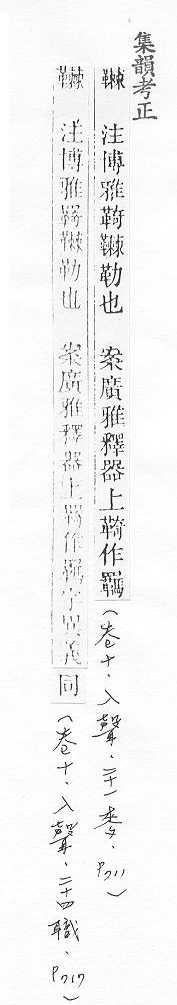 集韻考正
注博雅勒也 案廣雅釋器上作羈(卷十.入聲.二十一麥.P711)
注博雅勒也 案廣雅釋器上作羈字異義同(卷十.入聲.二十四職.P717)